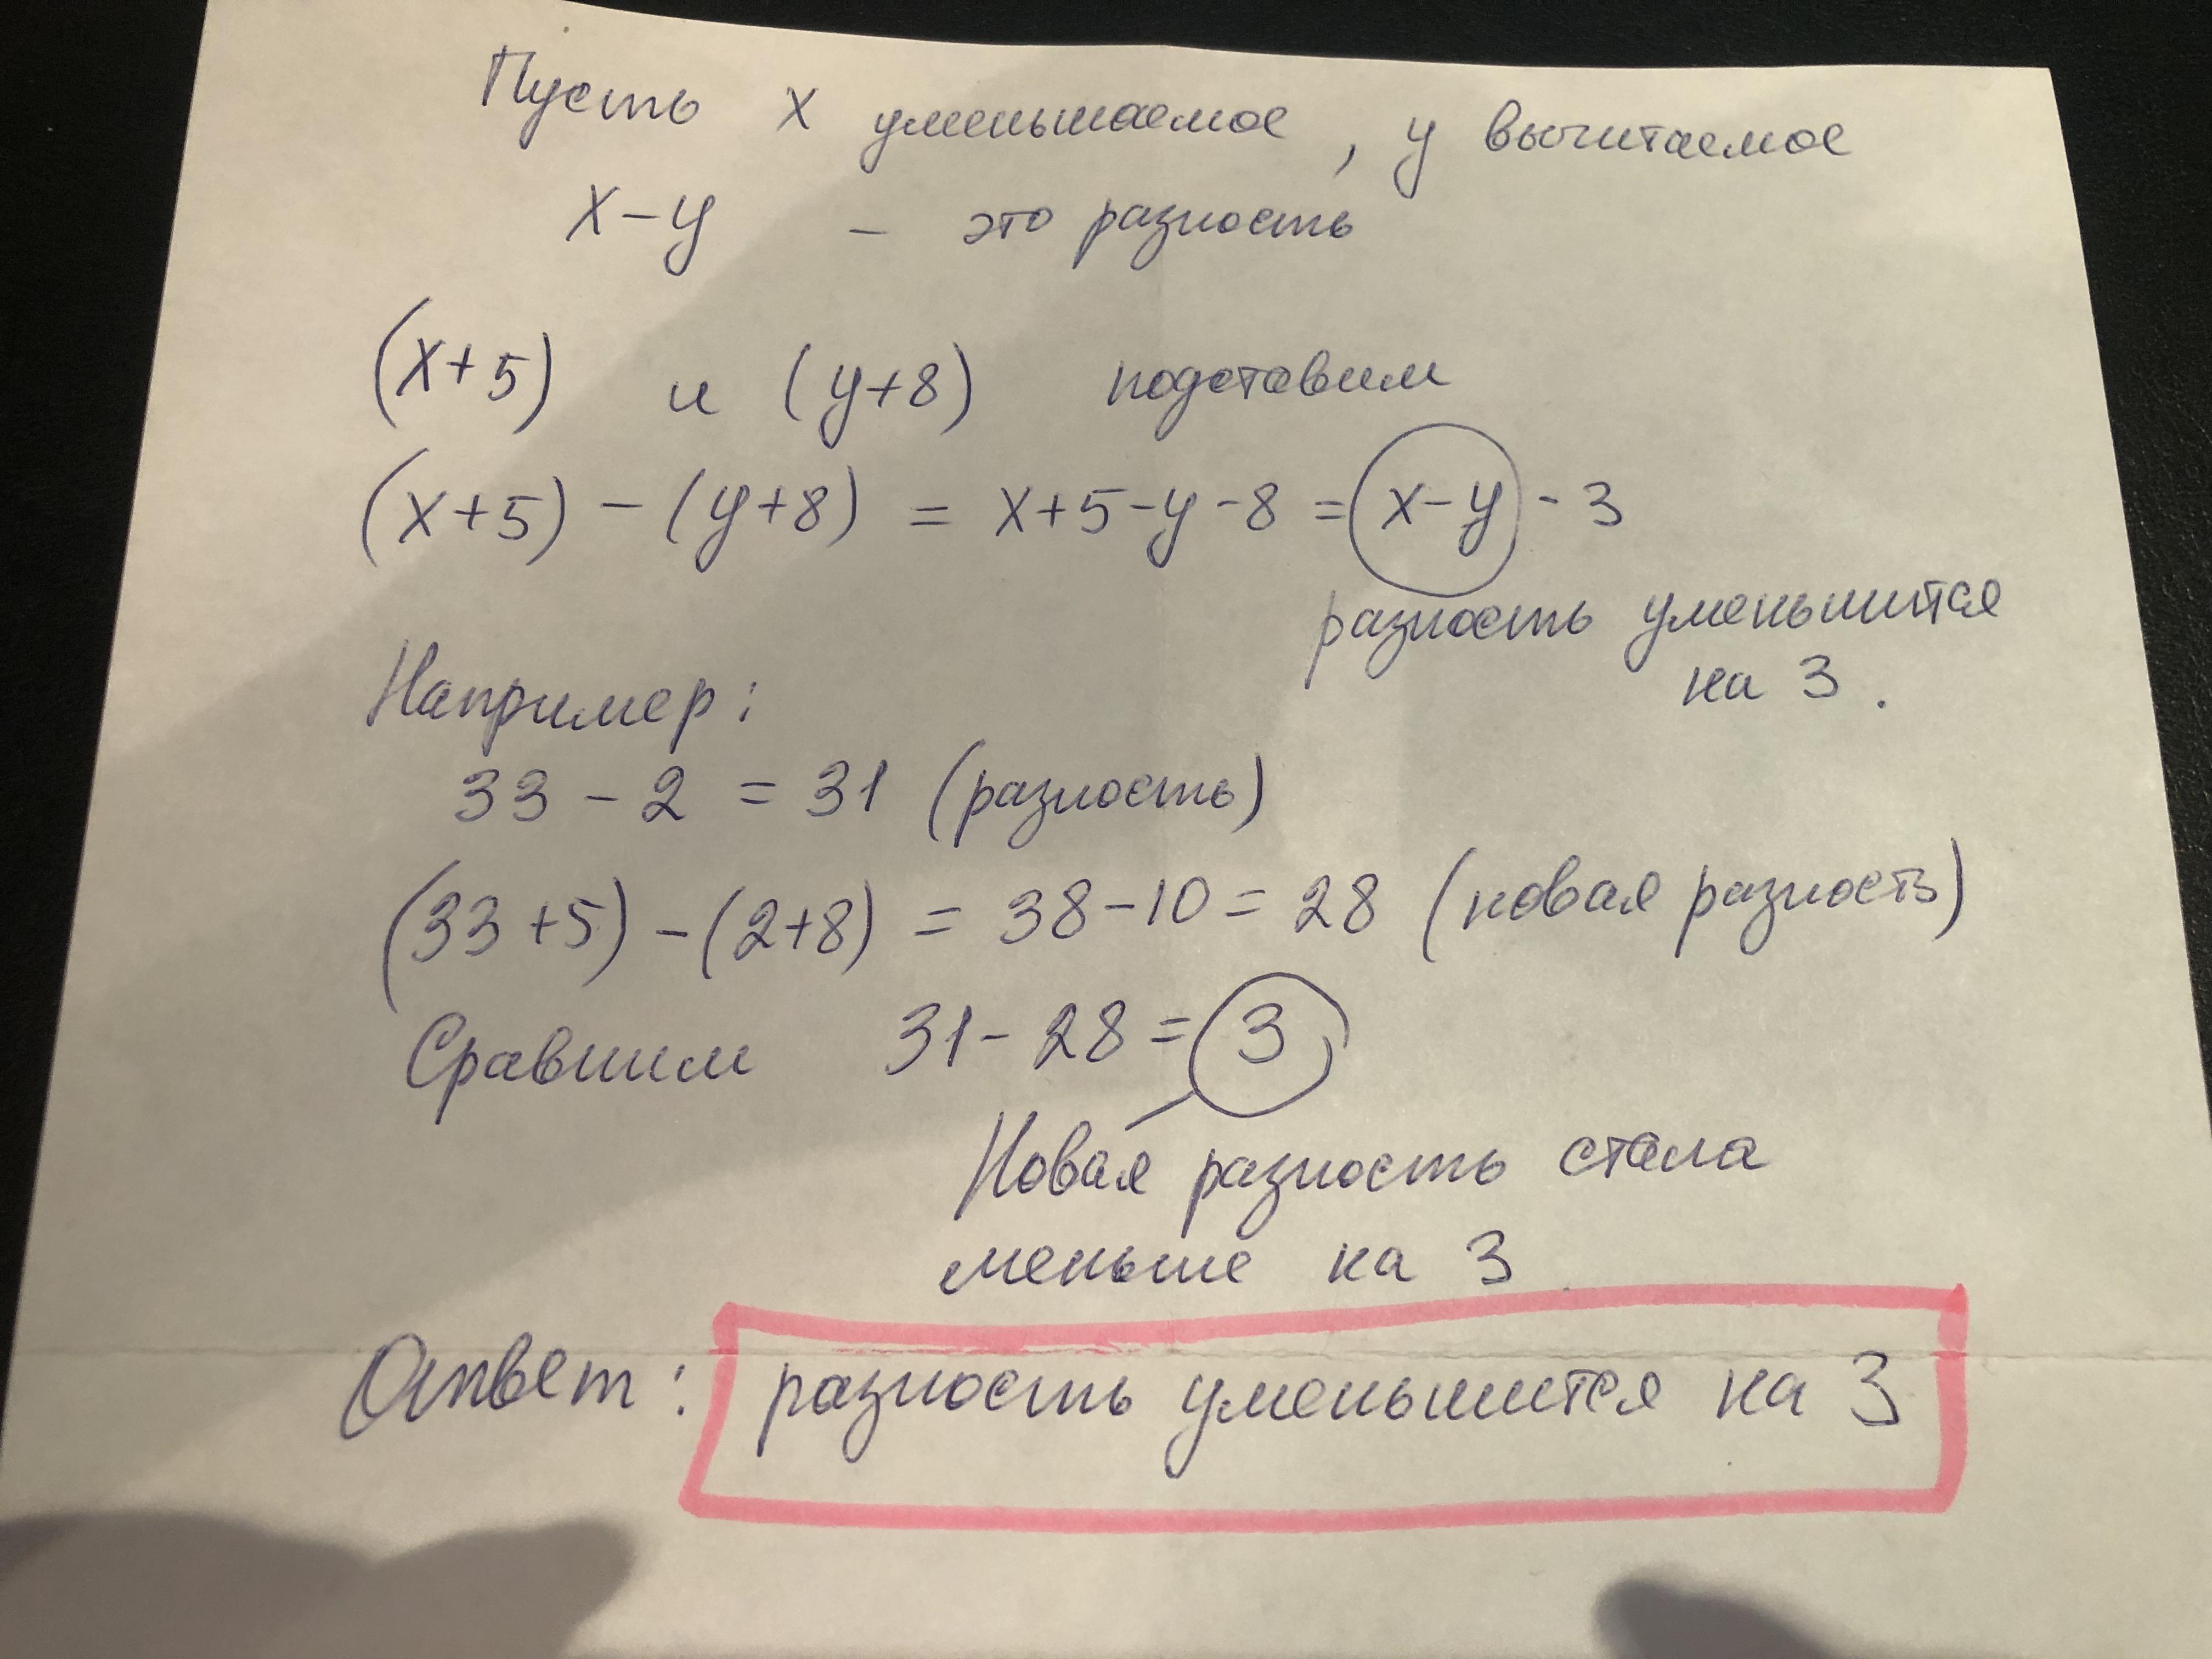 Пусть x уменьшаемое, y вычитаемое
x-y - это разность
(x+5) и (y+8) подставим
(x+5) - (y+8) = x+5-y-8 = x-y - 3
разность уменьшится
на 3.
Например:
33 - 2 = 31 (разность)
(33+5) - (2+8) = 38-10 = 28 (новая разность)
Сравним 31-28 = 3
Новая разность стала
меньше на 3
Ответ: разность уменьшится на 3